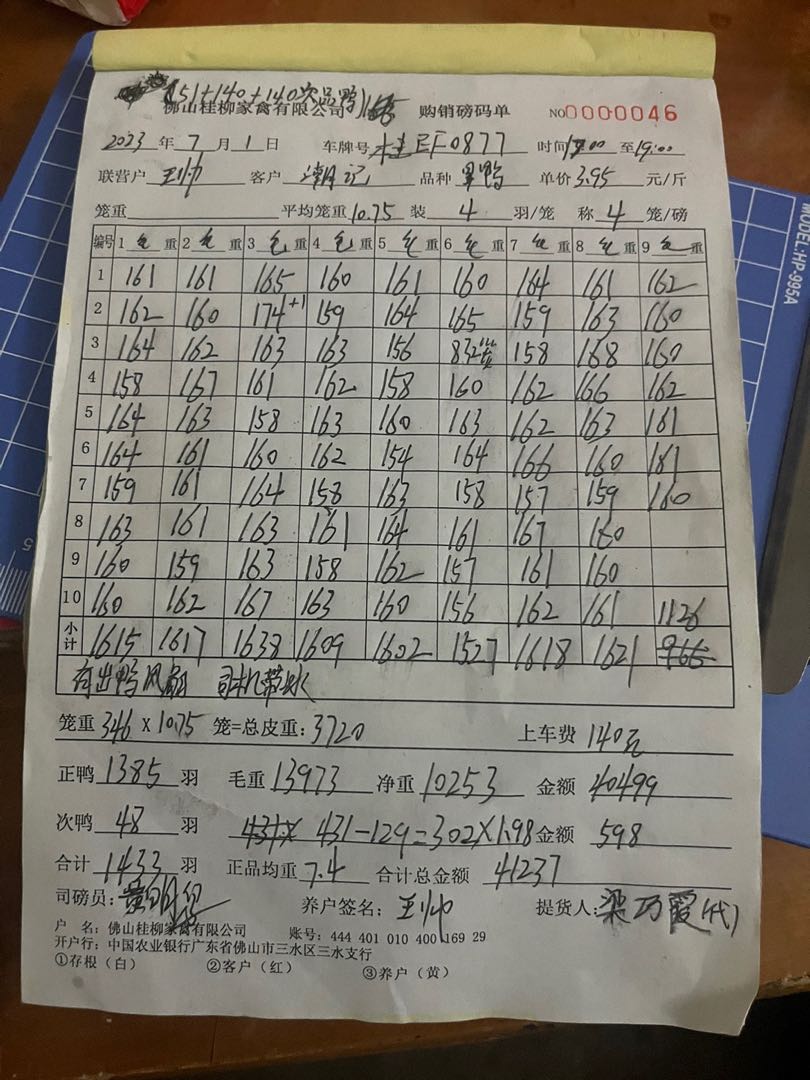 (151+140+140次品鸭)
佛山桂柳家禽有限公司 购销磅码单 NO0000046
2023年7月1日 车牌号 桂EF0877 时间17:00至19:00
联营户 王帅 客户 潮记 品种 黑鸭 单价3.95元/斤
笼重 平均笼重10.75 装4羽/笼 称4笼/磅
编号 1毛重 2毛重 3毛重 4毛重 5毛重 6毛重 7毛重 8毛重 9毛重
1 161 161 165 160 161 160 164 161 162
2 162 160 174+1 159 164 165 159 163 160
3 164 162 163 163 156 83 2笼 158 168 160
4 158 167 161 162 158 160 162 166 162
5 164 163 158 163 160 163 162 163 161
6 164 161 160 162 154 164 166 160 161
7 159 161 164 158 163 158 157 159 160
8 163 161 163 161 164 161 167 160
9 160 159 163 158 162 157 161 160
10 160 162 167 163 160 156 162 161 1126
小计 1615 1617 1638 1609 1602 1527 1618 1621 966
有出鸭风扇 司机带水
笼重346×10.75笼=总皮重:3720 上车费 140元
正鸭1385羽 毛重13973 净重10253 金额40499
次鸭48羽 431× 431-129=302×1.98 金额 598
合计1433羽 正品均重7.4 合计总金额 41237
司磅员: 养户签名:王帅 提货人:梁巧爱(代)
户 名:佛山桂柳家禽有限公司 账号:444 401 010 400 169 29
开户行:中国农业银行广东省佛山市三水区三水支行
①存根(白) ②客户(红) ③养户(黄)
MODEL:HP-995A
5